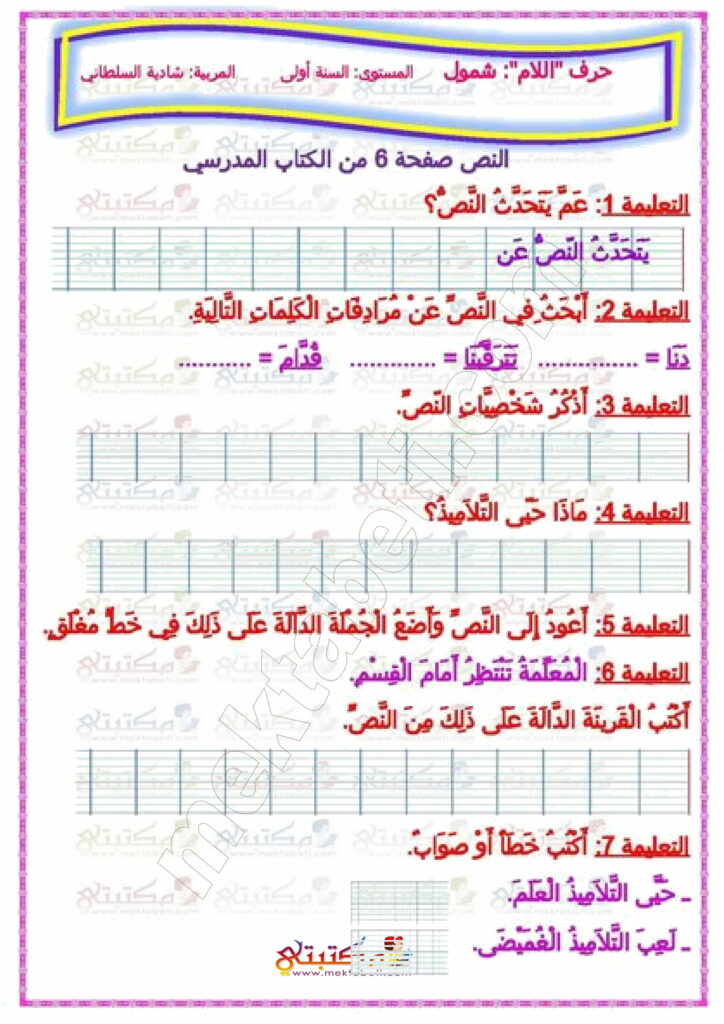 حرف "اللام": شمول المستوى: السنة أولى المربية: شادية السلطاني
النص صفحة 6 من الكتاب المدرسي
التعليمة 1: عَمَّ يَتَحَدَّثُ النَّصُّ؟
يَتَحَدَّثُ النَّصُّ عَن
التعليمة 2: أَبْحَثُ فِي النَّصِّ عَنْ مُرَادِفَاتِ الْكَلِمَاتِ التَّالِيَةِ.
دَنَا = ............... تَتَرَقَّبُنَا = ............. قُدَّامَ = ...........
التعليمة 3: أَذْكُرُ شَخْصِيَّاتِ النَّصِّ.
التعليمة 4: مَاذَا حَيَّى التَّلَامِيذُ؟
التعليمة 5: أَعُودُ إِلَى النَّصِّ وَأَضَعُ الْجُمْلَةَ الدَّالَةَ عَلَى ذَلِكَ فِي خَطٍّ مُغْلَقٍ.
التعليمة 6: الْمُعَلِّمَةُ تَنْتَظِرُ أَمَامَ الْقِسْمِ.
أَكْتُبُ الْقَرِينَةَ الدَّالَةَ عَلَى ذَلِكَ مِنَ النَّصِّ.
التعليمة 7: أَكْتُبُ خَطَأ أَوْ صَوَابٌ.
ـ حَيَّى التَّلَامِيذُ الْعَلَمَ.
ـ لَعِبَ التَّلَامِيذُ الْغُمَيْضَى.
مكتبتي
www.mektabeti.com
mektabeti.com